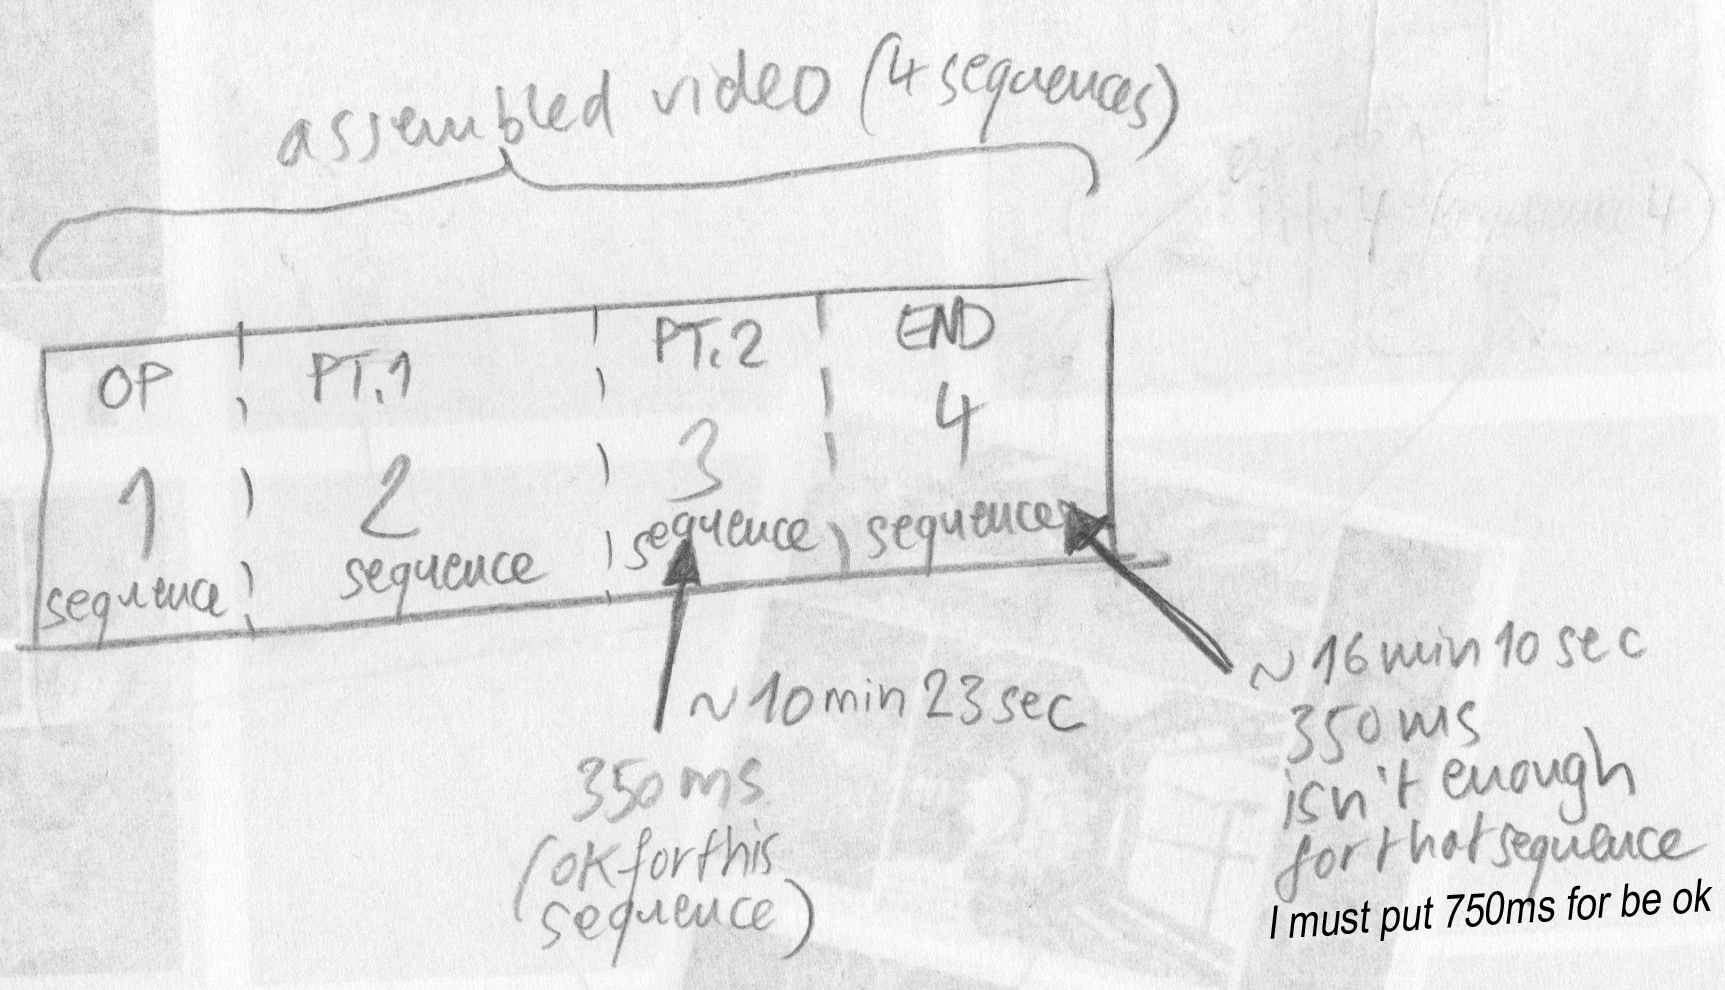 assembled video (4 sequences)
OP PT.1 PT.2 END
1 2 3 4
sequence sequence sequence sequence
~ 10 min 23 sec
350 ms
(OK for this
sequence)
~ 16 min 10 sec
350 ms
isn't enough
for that sequence
I must put 750ms for be ok